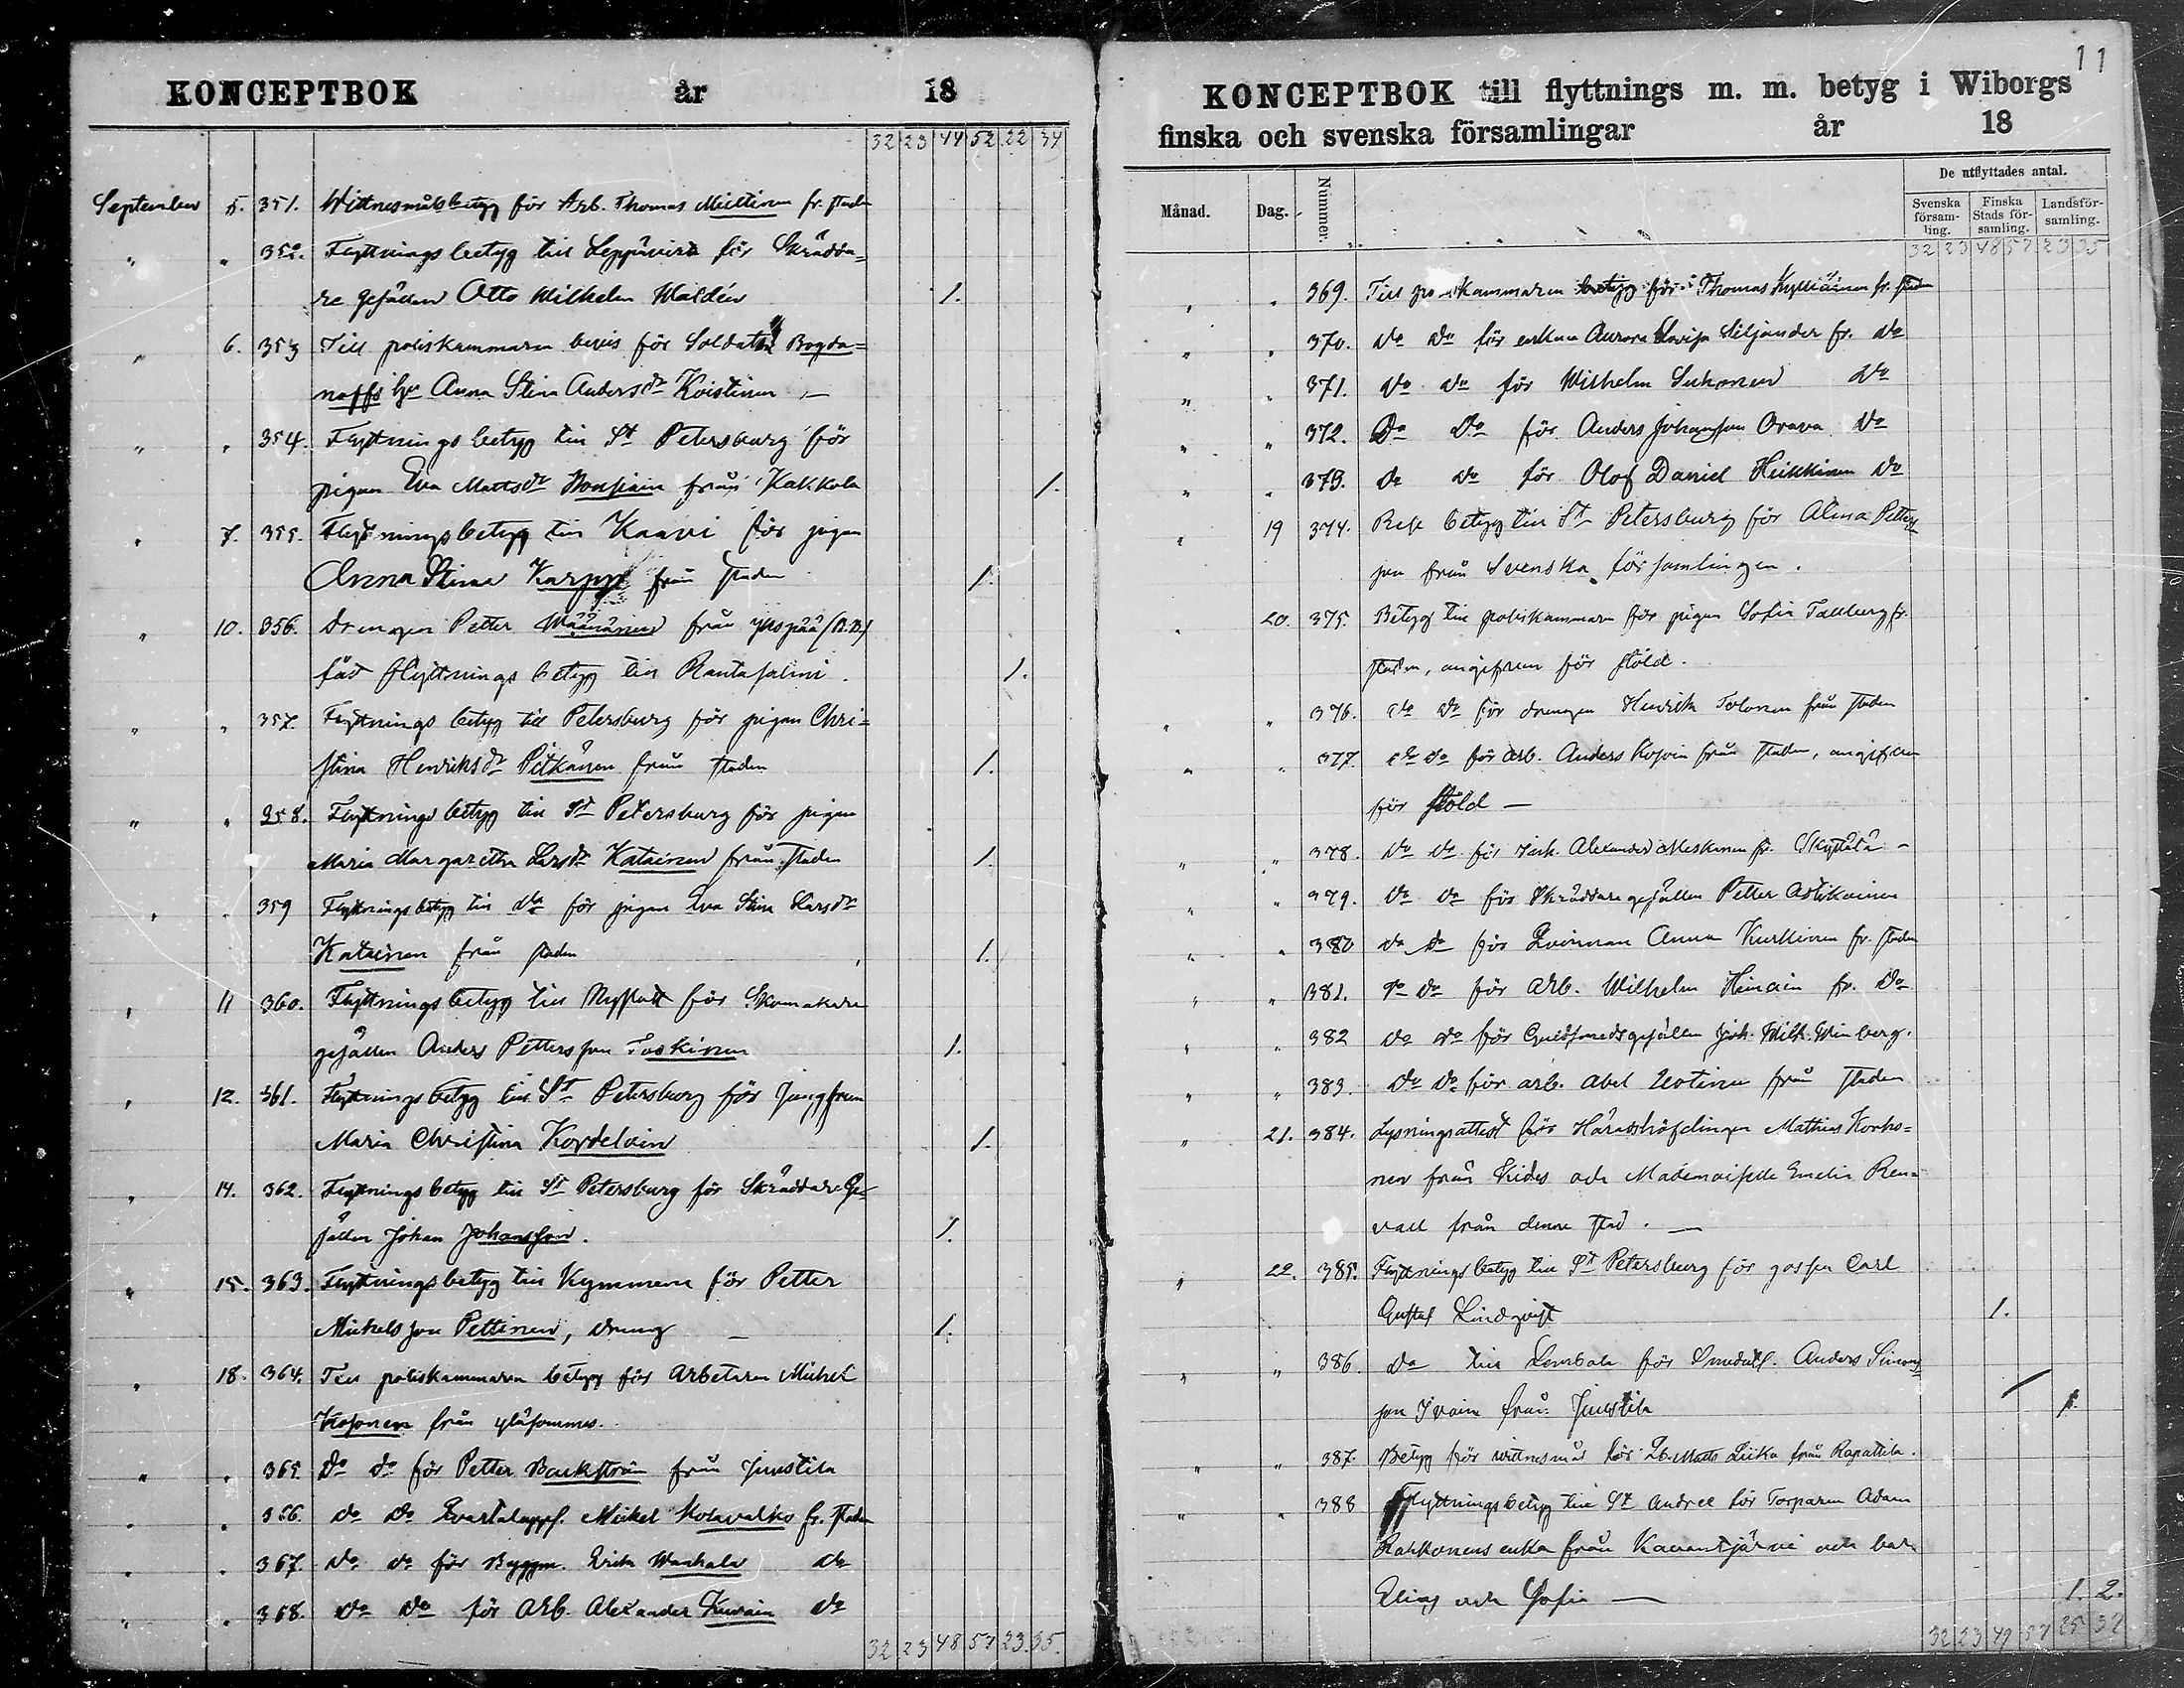 KONCEPTBOK år 18
32 23 44 52 22 34
September 5. 351. Wittnesmålsbetyg för Arb. Thomas Miettinen fr. staden
" " 352. Flyttningsbetyg till Leppävirta för Skrädda=
re gesällen Otto Wilhelm Waldén 1.
" 6. 353 Till poliskammaren bevis för Soldaten Bogda=
noffs h:u Anna Stina Andersd:r Koistinen —
" " 354. Flyttningsbetyg till St Petersburg för
pigan Eva Mattsd:r från Kakkola 1.
" 7. 355. Flyttningsbetyg till Kaavi för pigan
Anna Stina Karppi från staden 1.
" 10. 356. Drengen Petter Wäänänen från Yhspää (B.B)
fåt flyttningsbetyg till Rantasalmi. 1.
" " 357. Flyttningsbetyg till Petersburg för pigan Chri=
stina Henriksd:r Pitkänen från staden 1.
" " 358. Flyttningsbetyg till St Petersburg för pigan
Maria Margaretha Larsd:r Katainen från staden 1.
" " 359 Flyttningsbetyg till do för pigan Eva Stina Larsd:r
Katainen från staden 1.
" 11 360. Flyttningsbetyg till Nyslott för Skomakare
gesällen Anders Pettersson Toskinen 1.
" 12. 361. Flyttningsbetyg till St Petersburg för Jungfrun
Maria Christina Kordelin 1.
" 14. 362. Flyttningsbetyg till St Petersburg för Skräddare Ge=
sällen Johan Johansson. 1.
" 15. 363. Flyttningsbetyg till Kymmene för Petter
Mickelsson Pettinen, dreng — 1.
" 18. 364. Till poliskammaren betyg för Arbetaren Michel
Kosonen från Yläsommes.
" " 365. Do do för Petter Backström från Juustila
" " 366. do do Qvartaluppf. Mickel Kolavalko fr. staden
" " 367. do do för Byggm. Erik Wanhala do
" " 368. do do för Arb. Alexander do
32 23 48 57 23 35.
11
KONCEPTBOK till flyttnings m. m. betyg i Wiborgs
finska och svenska församlingar år 18
Månad. Dag. Nummer. De utflyttades antal.
Svenska försam- ling. Finska Stads för- samling. Landsför- samling.
32 23 48 57 23 35
" " 369. Till poliskammaren betyg för Thomas Kylliäinen fr. staden
" " 370. do do för enkan Aurora Lovisa Siljander fr. do
" " 371. do do för Wilhelm Suhonen do
" " 372. Do Do för Anders Johansson Orava do
" " 373. do do för Olof Daniel Heikkinen do
" 19 374. Rese betyg till St Petersburg för Alma Petters
son från Svenska församlingen.
" 20. 375. Betyg till poliskammaren för pigan Sofia Tallberg fr.
staden, angifven för stöld.
" " 376. do do för drengen Henrik Tolonen från staden
" " 377. do do för arb. Anders från staden, angifven
för stöld —
" " 378. do do för Alexander Meskanen fr. Skyttälä —
" " 379. do do för Skräddaregesällen Petter Astikainen
" " 380 do do för Qvinnan Anna Kurkinen fr. staden
" " 381. do do för Arb. Wilhelm fr. do
" " 382 do do för Guldsmedsgesällen Joh. Wilh. Winberg.
" " 383. do do för arb. Abel Uotinen från staden
" 21. 384. Lysningsattest för Häradshöfdingen Mathias Korho=
nen från Kides och Mademoiselle Emelie Ren=
vall från denna stad. —
" 22. 385. Flyttningsbetyg till St Petersburg för gossen Carl
Gustaf Lindqvist 1.
" " 386. do till Lembala för Anders Simons
son från Juustila 1
" " 387. Betyg för wittnesmål för Matts Liika från Rapattila.
" " 388 Flyttningsbetyg till St Andree för Torparen Adam
Rahkonens enka från Kavantjärvi och barn
Elias och Sofia — 1. 2.
32 23 49 57 25 37